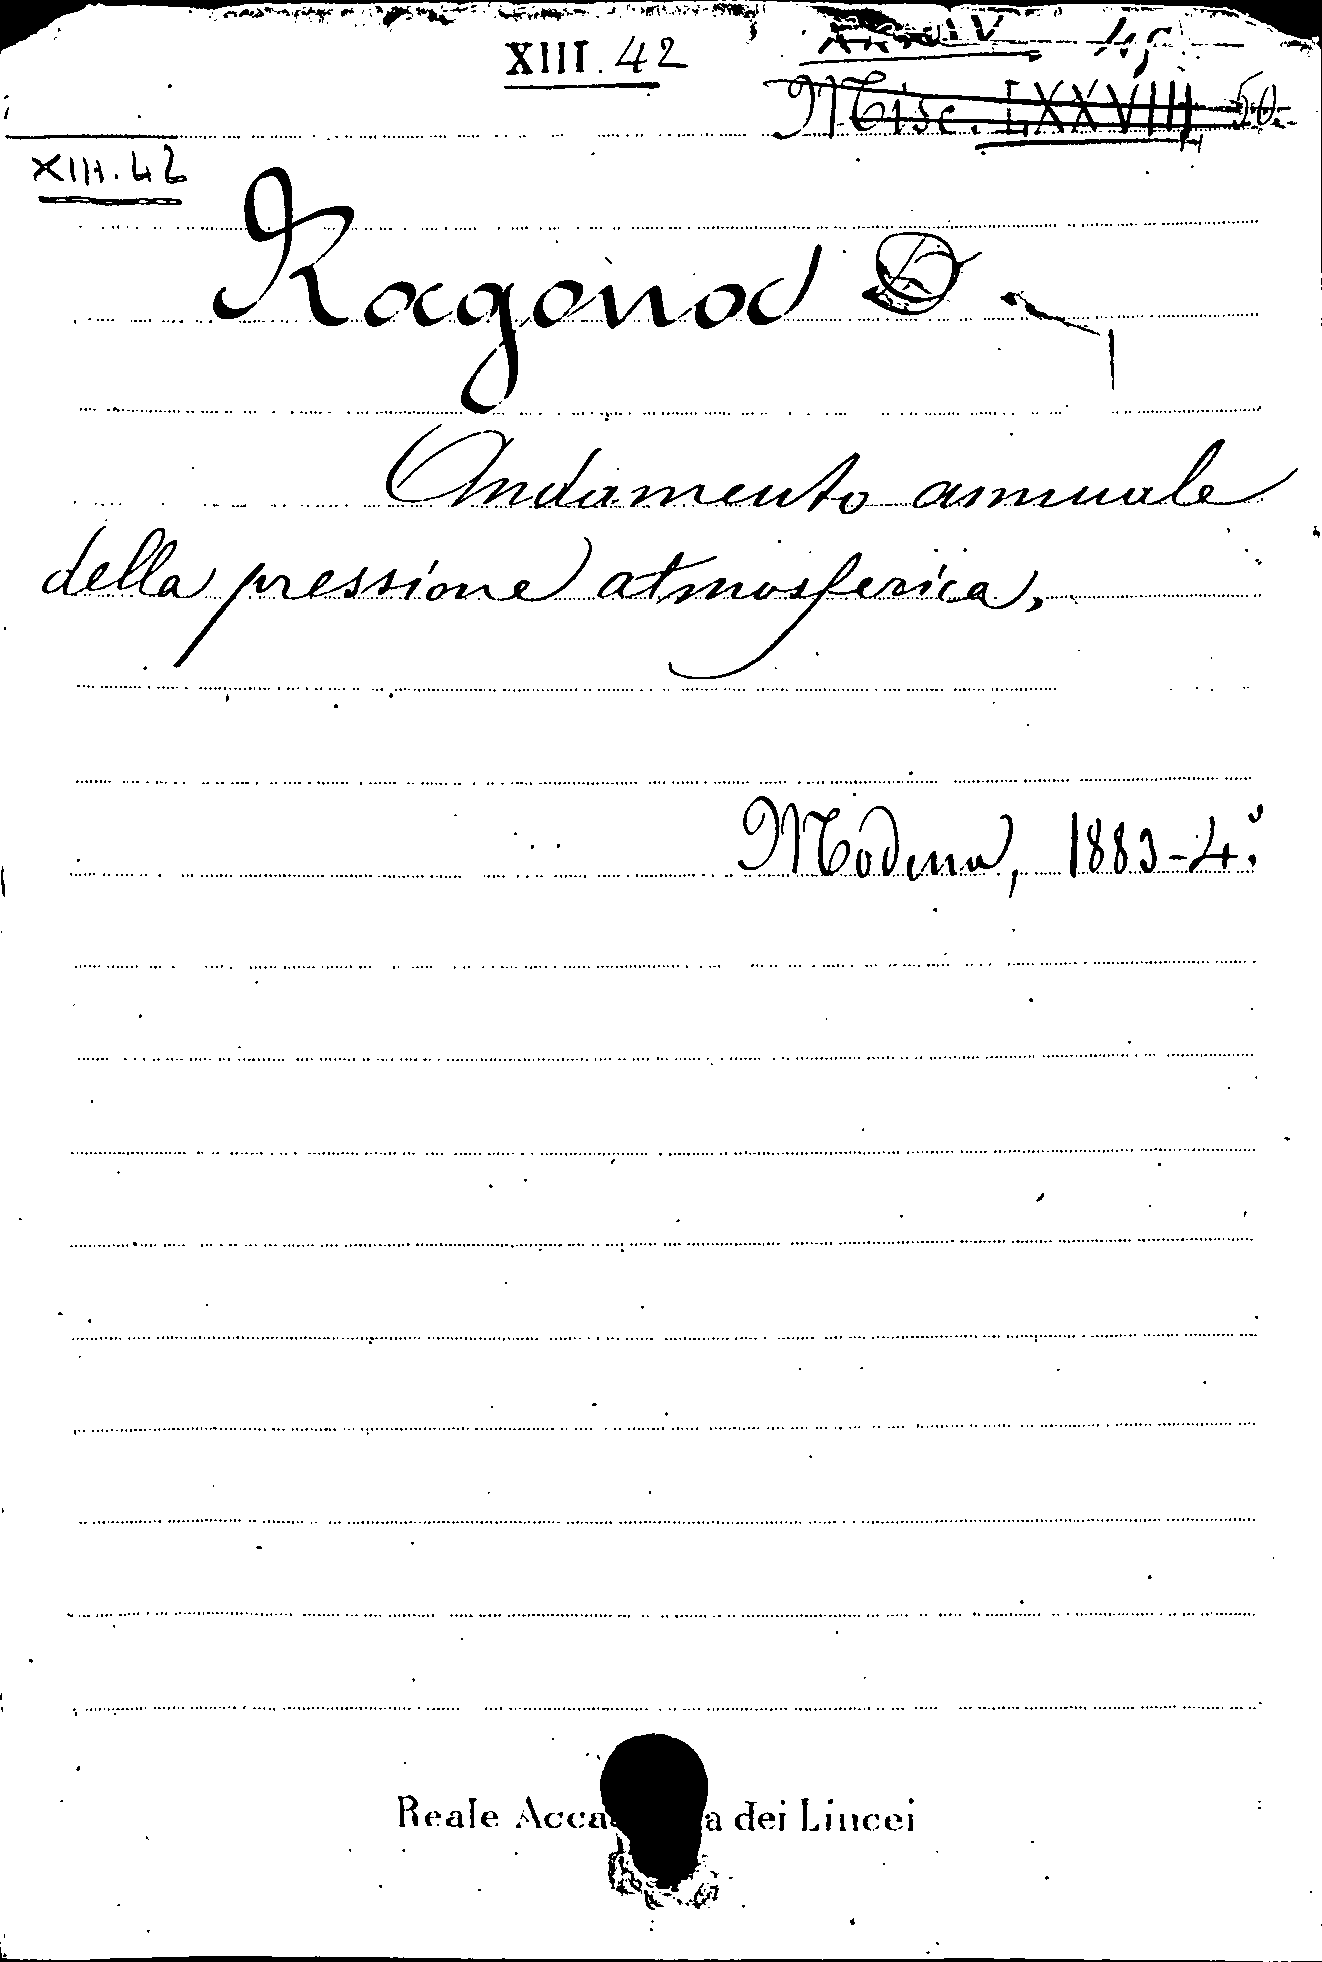 XIII. 42
Misc. LXXVIII 50.
XIII. 42
Ragona D.
Andamento annuale
della pressione atmosferica,
Modena, 1883-4.°
Reale Acca a dei Lincei